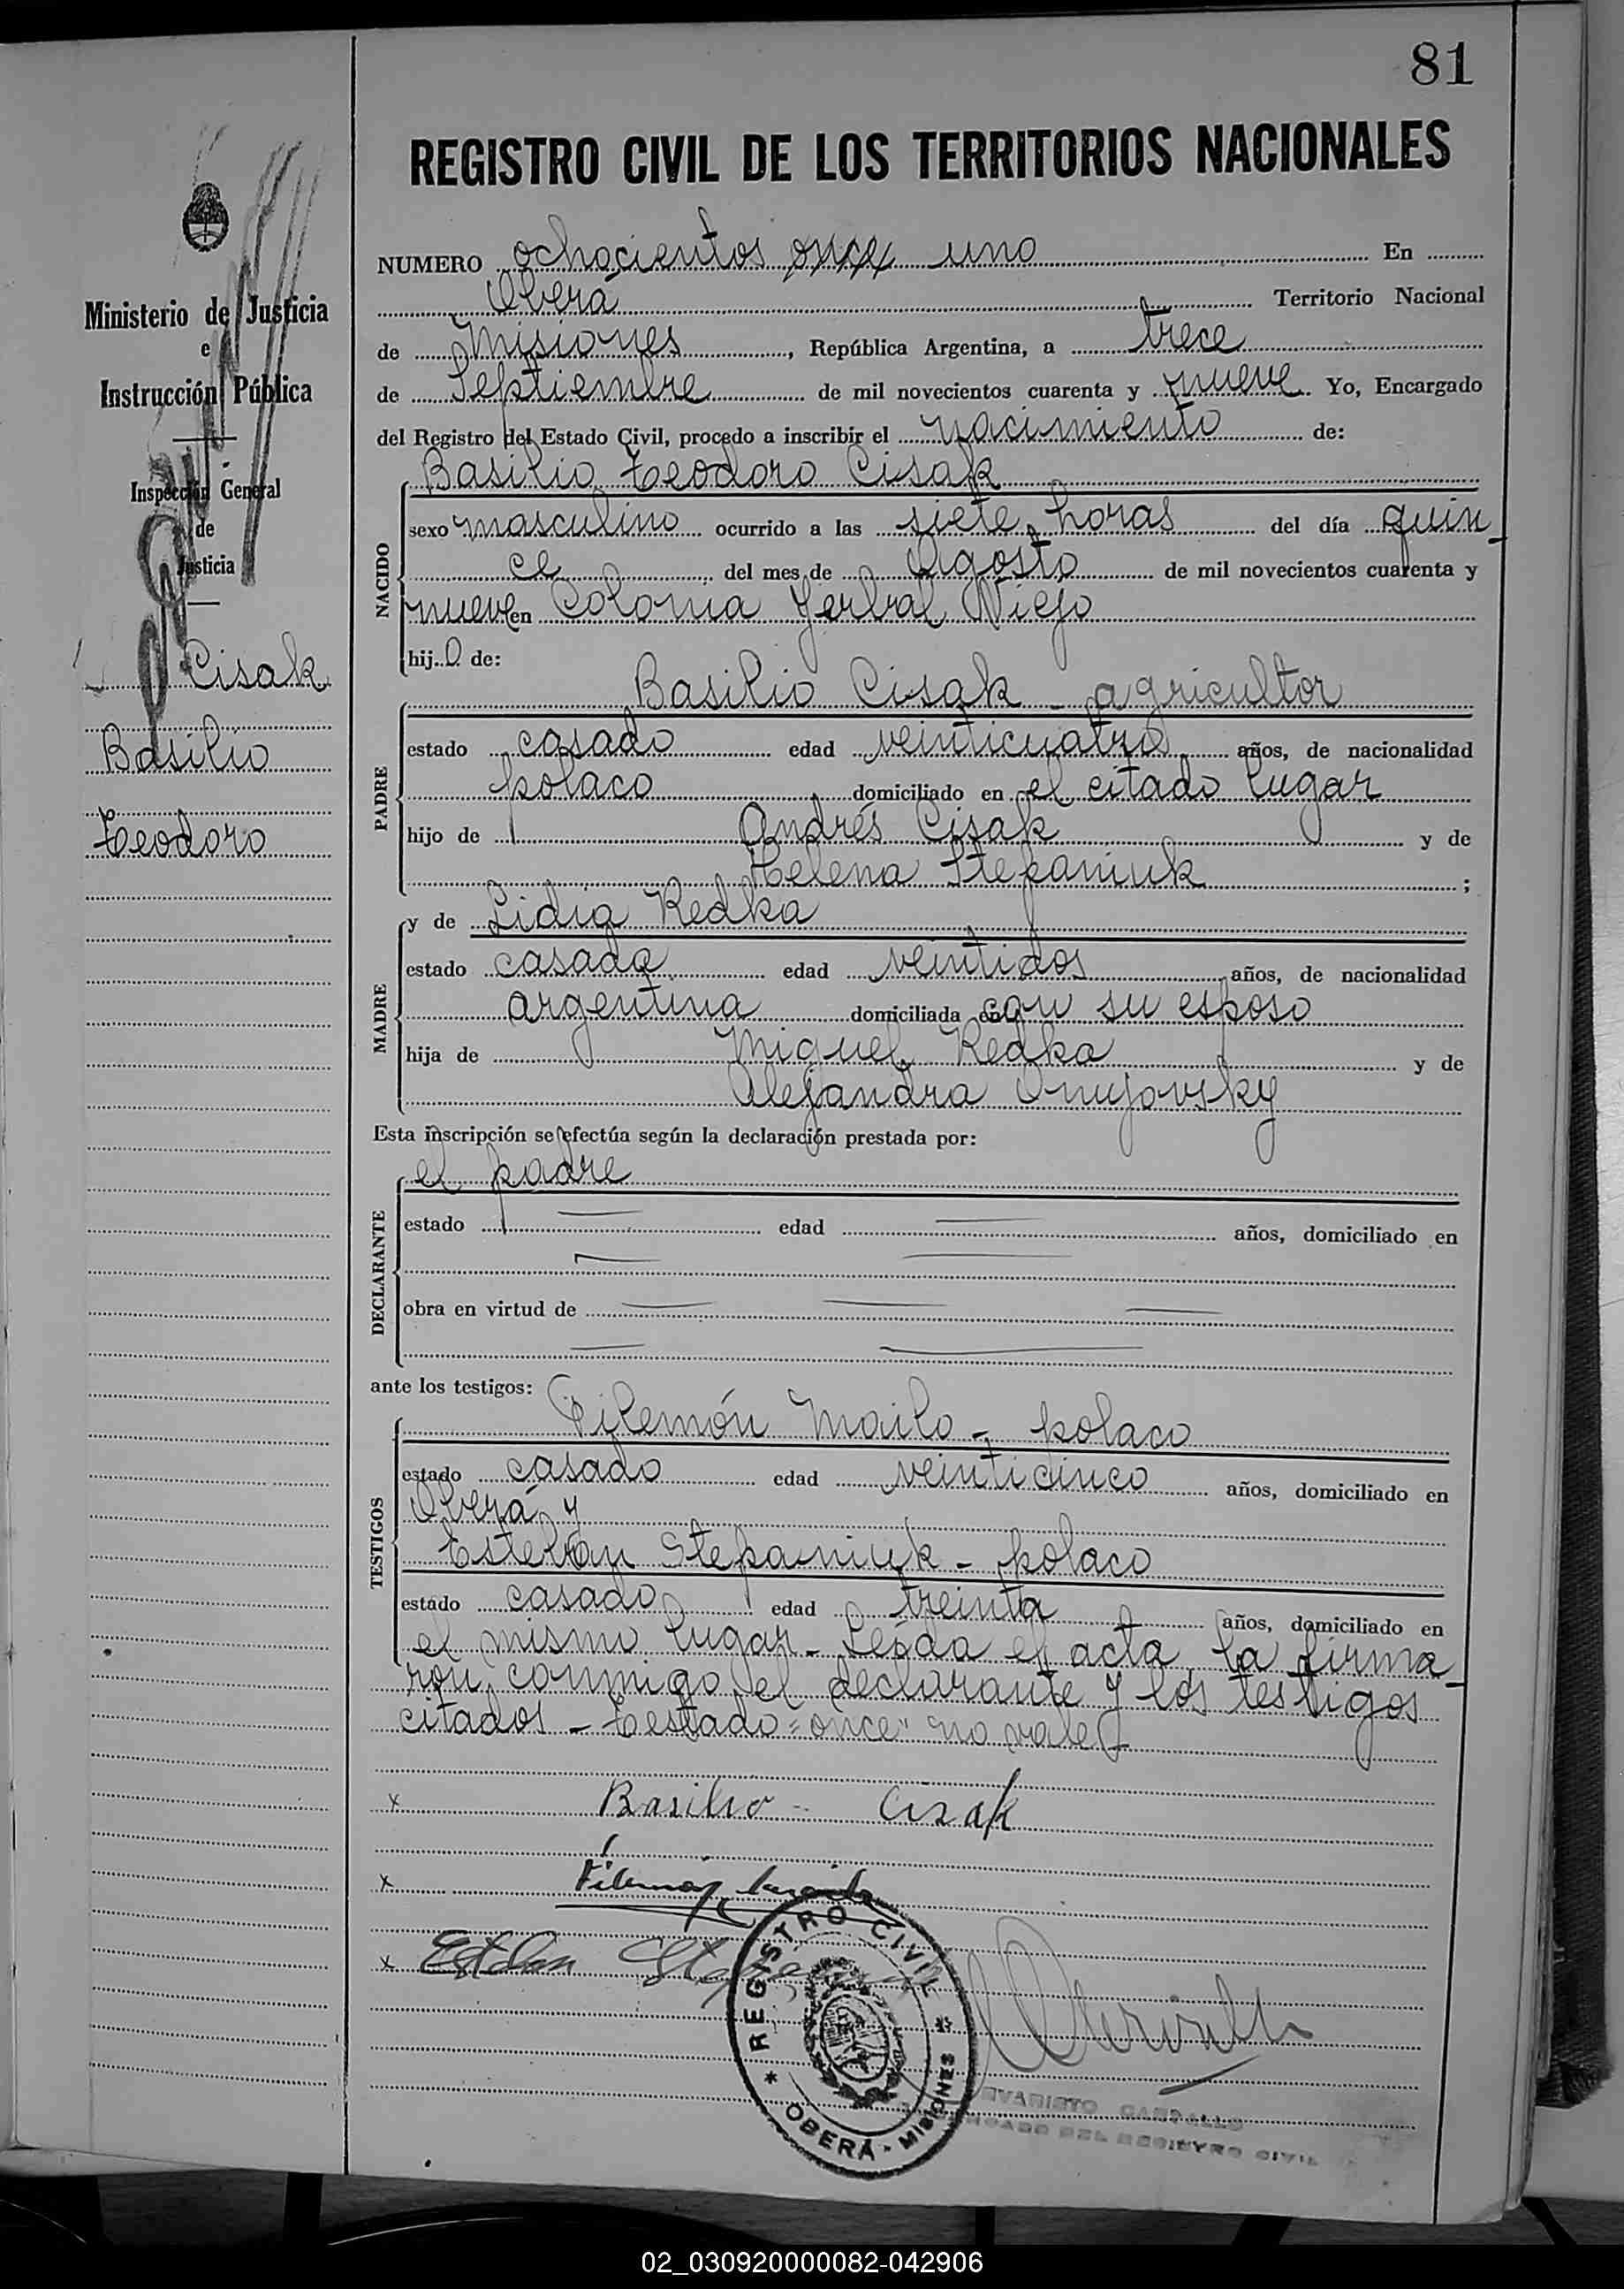 81
REGISTRO CIVIL DE LOS TERRITORIOS NACIONALES
Ministerio de Justicia
e
Instrucción Pública
Inspección General
de
Justicia
Cisak
Basilio
Teodoro
NUMERO ochocientos once uno En
Oberá Territorio Nacional
de Misiones, República Argentina, a trece
de Septiembre de mil novecientos cuarenta y nueve Yo, Encargado
del Registro del Estado Civil, procedo a inscribir el nacimiento de:
Basilio Teodoro Cisak
NACIDO
sexo masculino ocurrido a las siete horas del día quin-
ce del mes de Agosto de mil novecientos cuarenta y
nueve en Colonia Yerbal Viejo
hijo de:
Basilio Cisak - agricultor
PADRE
estado casado edad veinticuatro años, de nacionalidad
polaco domiciliado en el citado lugar
hijo de Andrés Cisak y de
Helena Stepaniuk ;
MADRE
y de Lidia Redka
estado casada edad veintidos años, de nacionalidad
argentina domiciliada en con su esposo
hija de Miguel Redka y de
Alejandra Onujovsky
Esta inscripción se efectúa según la declaración prestada por:
DECLARANTE
el padre
estado edad años, domiciliado en
obra en virtud de
ante los testigos:
TESTIGOS
Filemón Mailo - polaco
estado casado edad veinticinco años, domiciliado en
Oberá y
Esteban Stepaniuk - polaco
estado casado edad treinta años, domiciliado en
el mismo lugar - Leída el acta, la firma-
ron conmigo el declarante y los testigos
citados - Testado = "once" no vale -
x Basilio - Cisak
x Filemón
x Esteban
REGISTRO CIVIL
OBERÁ - MISIONES
EVARISTO
ENCARGADO DEL REGISTRO CIVIL
02_030920000082-042906